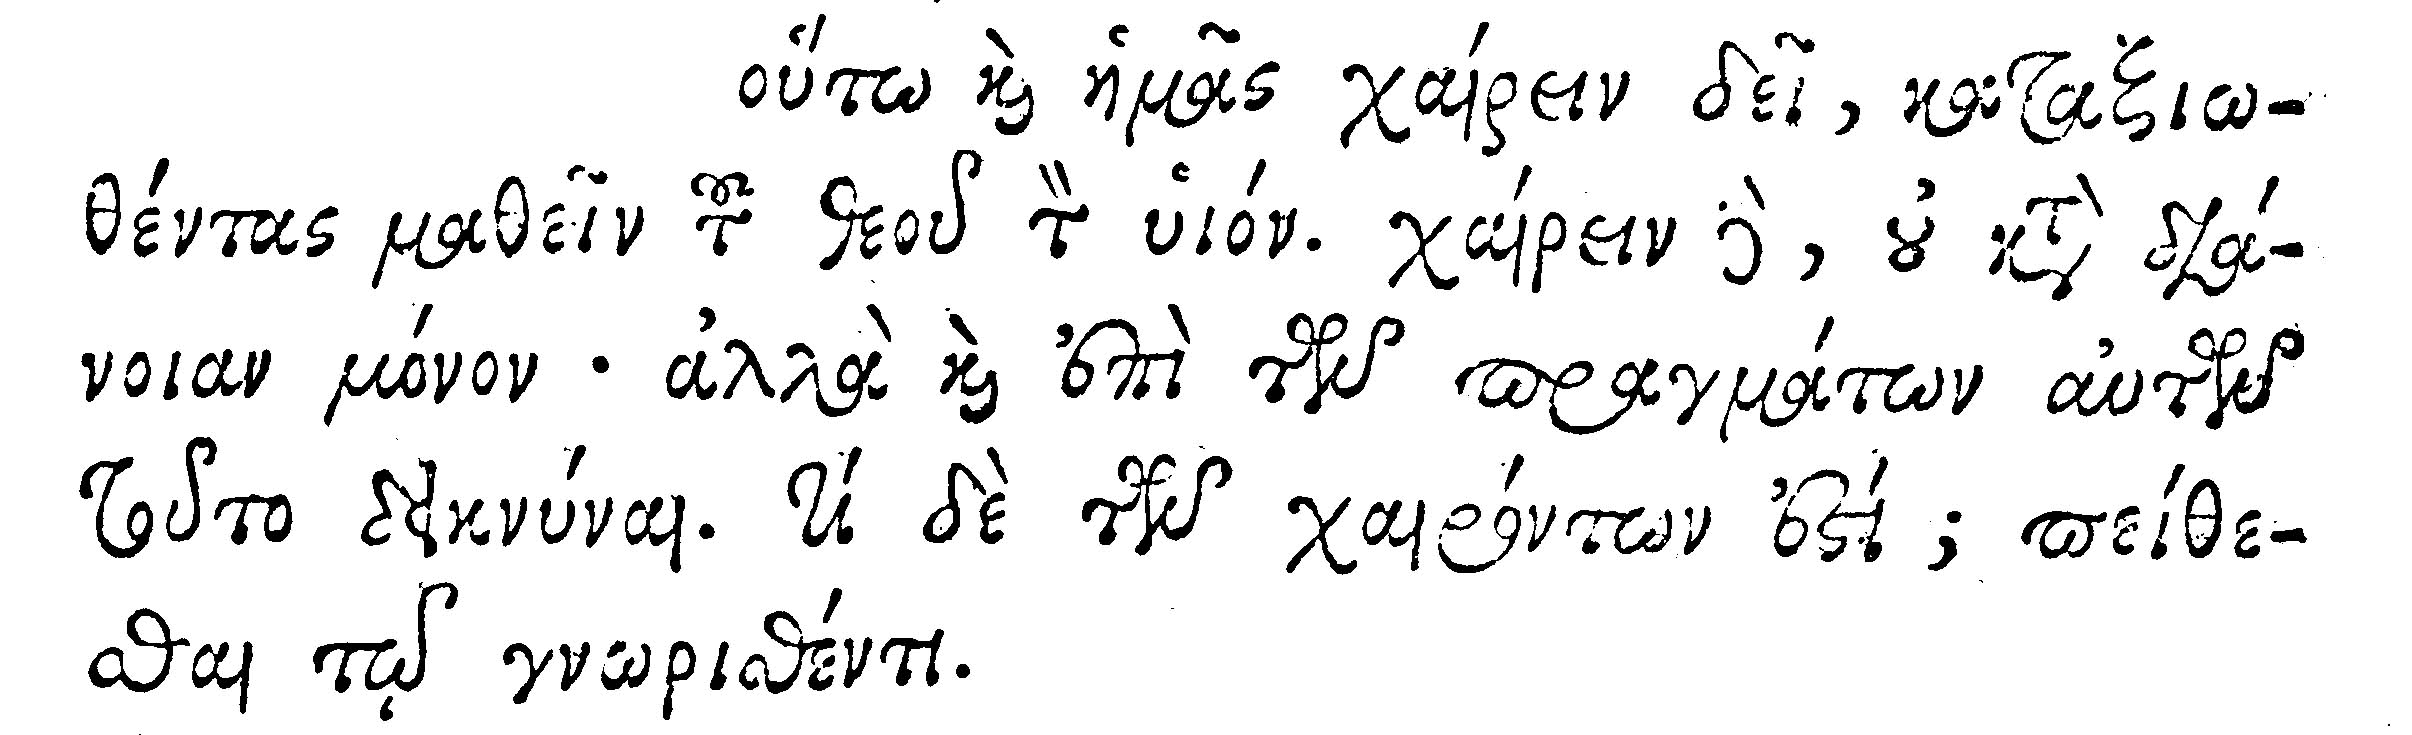 οὕτω καὶ ἡμᾶς χαίρειν δεῖ, καταξιω-
θέντας μαθεῖν τοῦ θεοῦ τὸν υἱόν. χαίρειν δὲ, οὐ κατὰ διά-
νοιαν μόνον · ἀλλὰ καὶ ἐπὶ τῶν πραγμάτων αὐτῶν
τοῦτο δεικνύναι. τί δὲ τῶν χαιρόντων ἐστί; πείθε-
σθαι τῷ γνωρισθέντι.